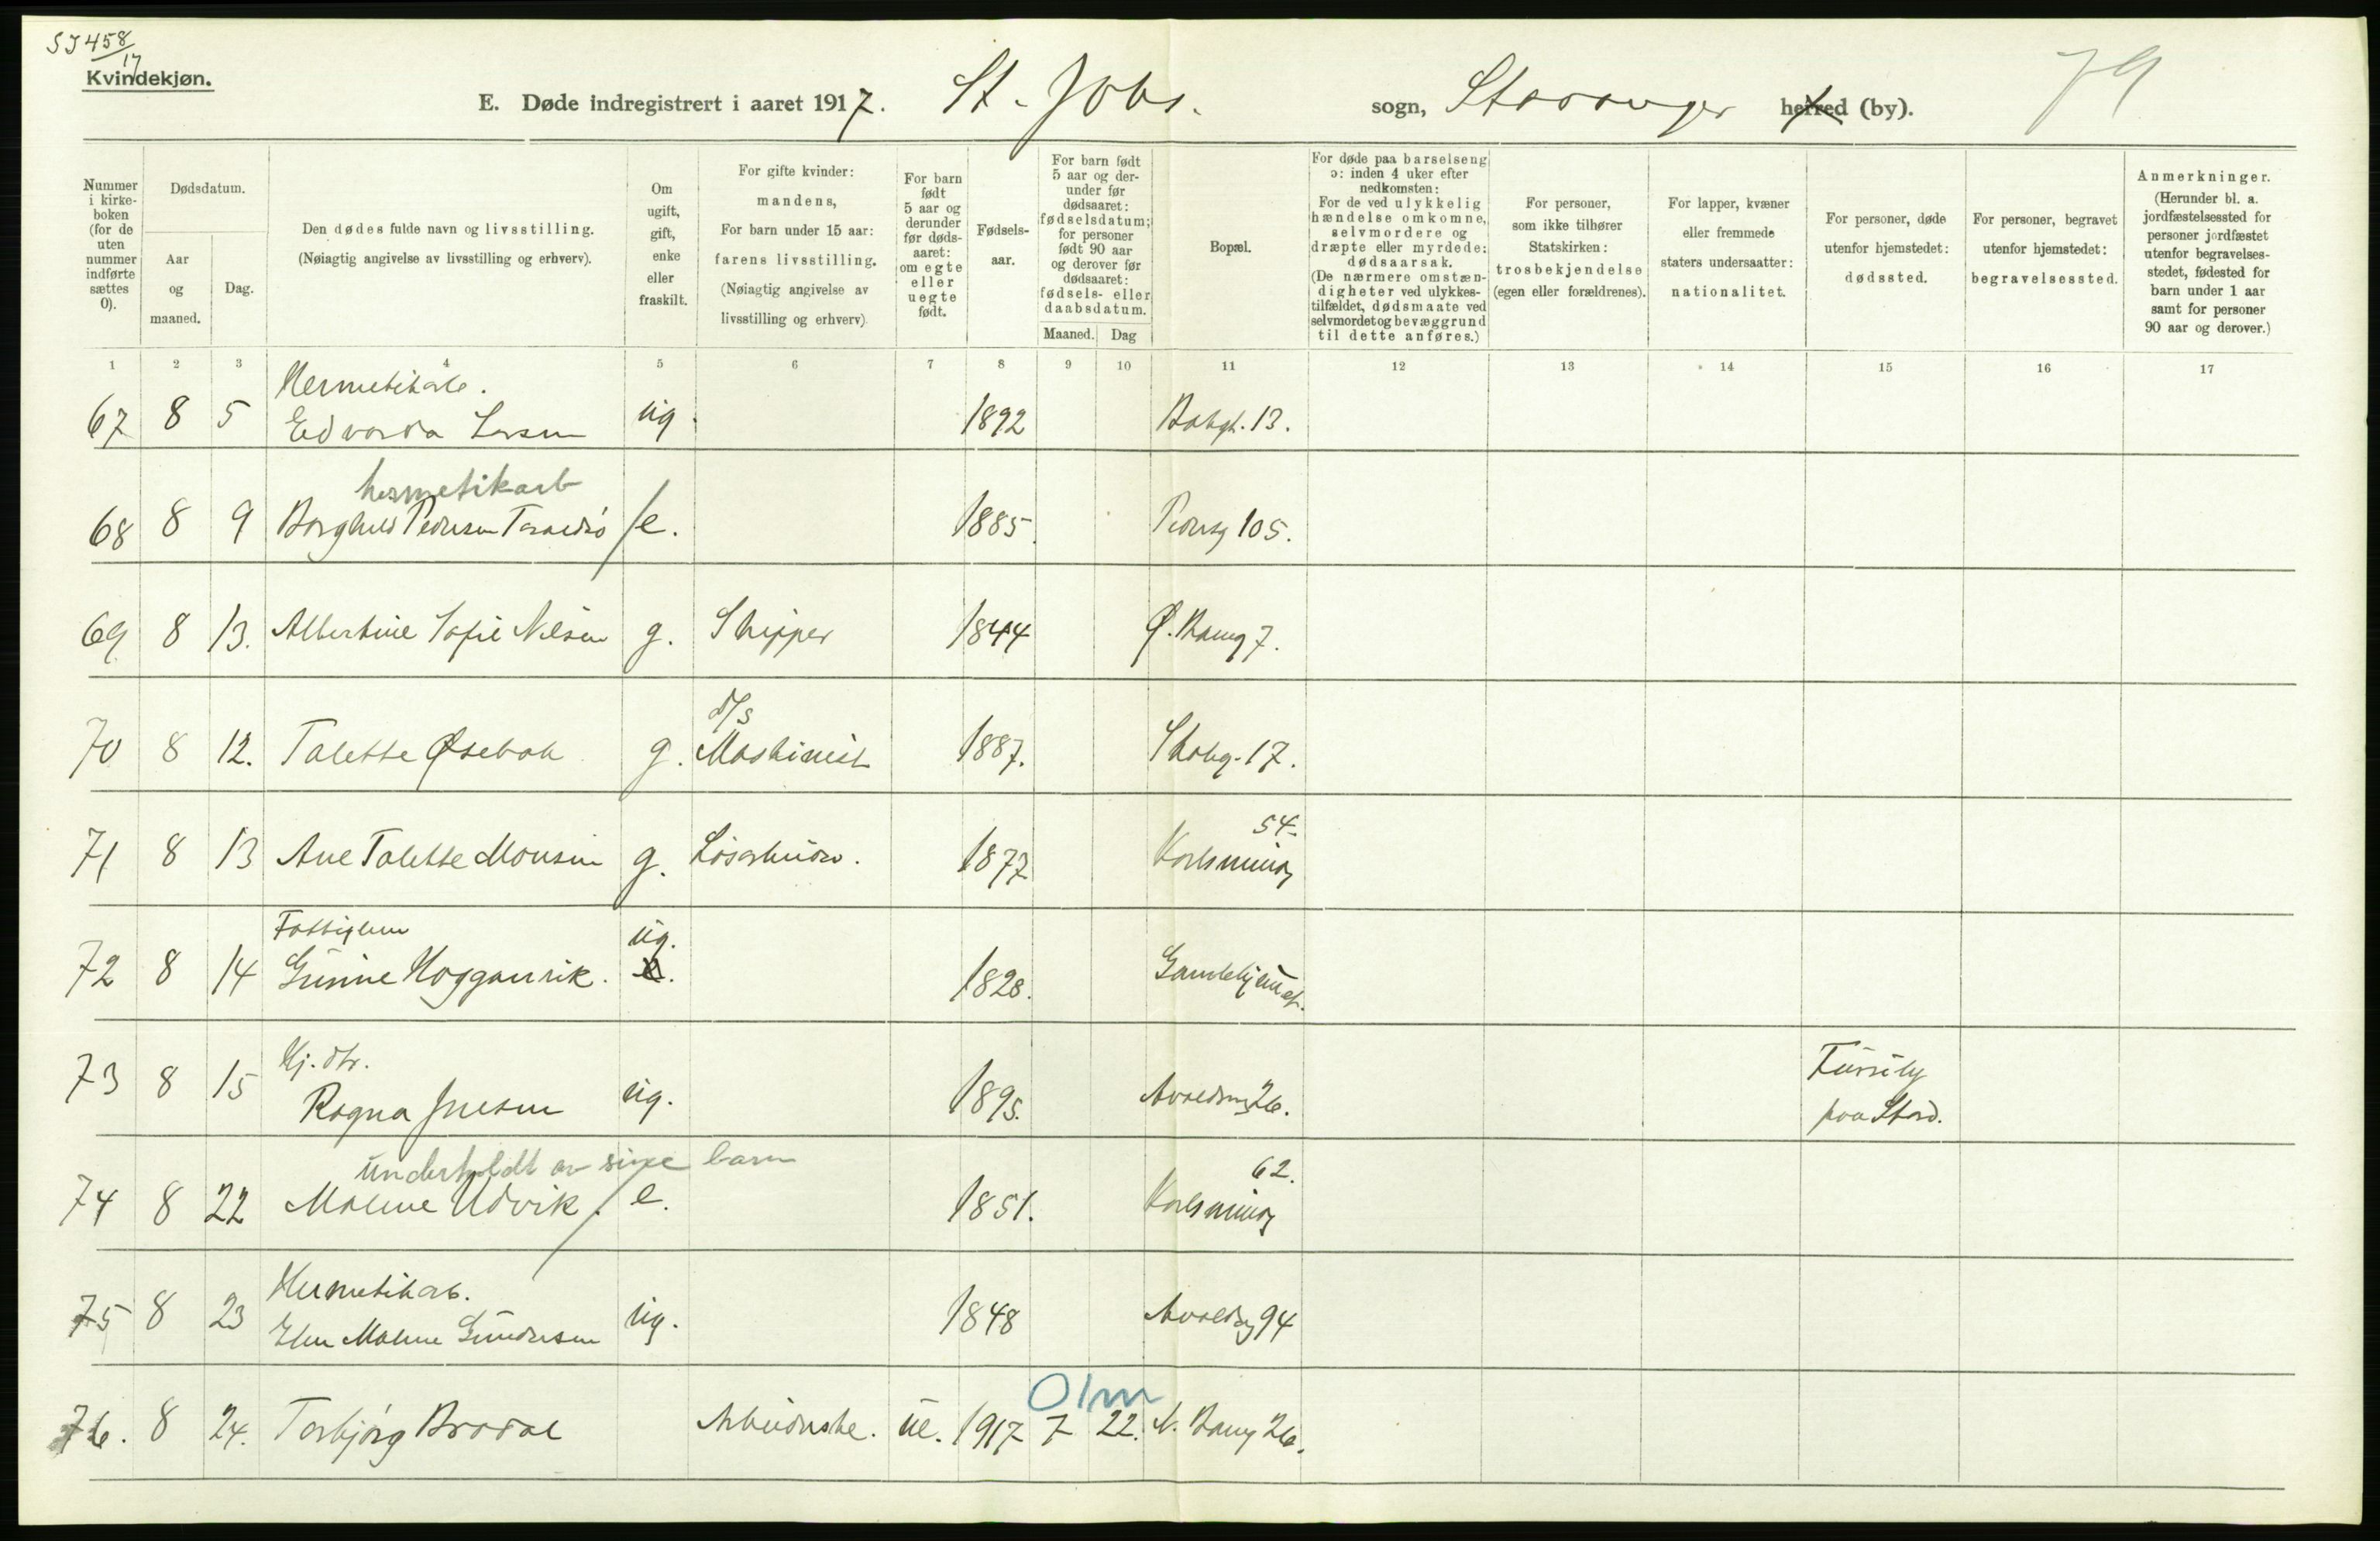 SJ 458/17
Kvindekjøn.
E. Døde indregistrert i aaret 1917. St. Johs. sogn, Stavanger herred (by).
79
Nummer i kirke- boken (for de uten nummer indførte sættes 0).
Dødsdatum.
Aar og maaned.
Dag.
Den dødes fulde navn og livsstilling.
(Nøiagtig angivelse av livsstilling og erhverv).
Om ugift, gift, enke eller fraskilt.
For gifte kvinder: mandens,
For barn under 15 aar: farens livsstilling.
(Nøiagtig angivelse av livsstilling og erhverv).
For barn født 5 aar og derunder før døds- aaret: om egte eller uegte født.
Fødsels- aar.
For barn født 5 aar og der- under før dødsaaret: fødselsdatum; for personer født 90 aar og derover før dødsaaret: fødsels- eller daabsdatum.
Maaned.
Dag
Bopæl.
For døde paa barselseng ɔ: inden 4 uker efter nedkomsten:
For de ved ulykkelig hændelse omkomne, selvmordere og dræpte eller myrdede: dødsaarsak.
(De nærmere omstæn- digheter ved ulykkes- tilfældet, dødsmaate ved selvmordet og bevæggrund til dette anføres.)
For personer, som ikke tilhører Statskirken: trosbekjendelse (egen eller forældrenes).
For lapper, kvæner eller fremmede staters undersaatter: nationalitet.
For personer, døde utenfor hjemstedet: dødssted.
For personer, begravet utenfor hjemstedet: begravelsessted.
Anmerkninger.
(Herunder bl. a. jordfæstelsessted for personer jordfæstet utenfor begravelses- stedet, fødested for barn under 1 aar samt for personer 90 aar og derover.)
1 2 3 4 5 6 7 8 9 10 11 12 13 14 15 16 17
Hermetikarb.
67 8 5 Edvarda Larsen ug. 1892 Bakgt. 13.
hermetikarb
68 8 9 Borghild Pedersen e. 1885. Pedersg 105.
69 8 13. Albertine Sofie Nilsen g. Skipper 1844 Ø. Bang 7.
D/S
70 8 12. Talette Øsebak g. Maskinist 1887. Skoleg. 17.
54.
71 8 13 Ane Talette Monsen g. Løsarbeider. 1877
Fattiglem ug.
72 8 14 Gunine Hogganvik. e. 1828. Gamlehjemmet.
Hj. dtr.
73 8 15 Ragna Jensen ug. 1895. Avaldsnesg 26. paa Stord.
underholdt av sine barn
62.
74 8 22 Malene Udvik. e. 1851.
Hermetikarb.
75 8 23 Elen Malene Gundersen ug. 1848 Avaldsg 94
Olm
76. 8 24. Torbjørg Bradal Arbeiderske. ue. 1917 7 22. N. Bang 26.